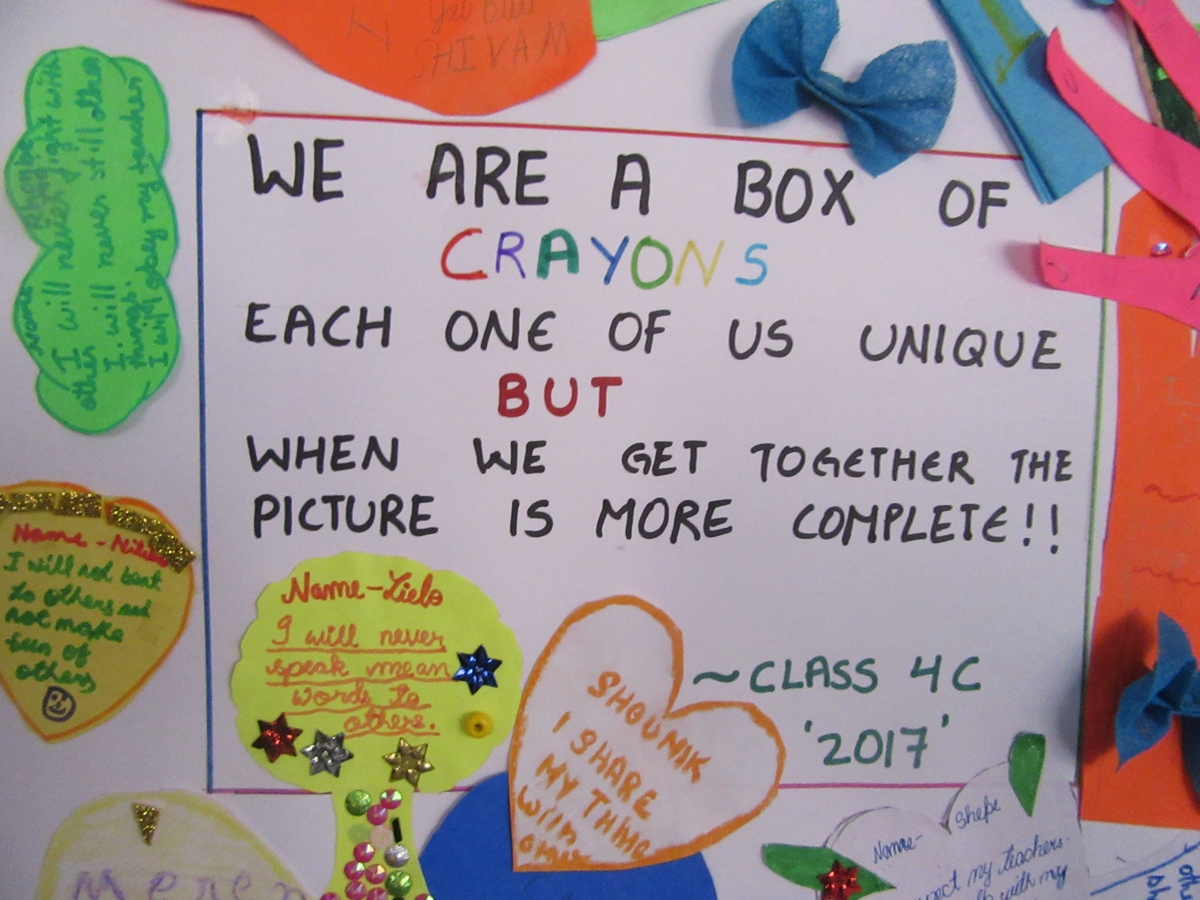 SHIVAM
WE ARE A BOX OF
CRAYONS
EACH ONE OF US UNIQUE
BUT
WHEN WE GET TOGETHER THE
PICTURE IS MORE COMPLETE!!
~CLASS 4C
'2017'
I will never fight with
other
I will never still other
things.
I will obey my teacher
Name -
I will not beat
to others and
not make
fun of
others
Name-Lielo
I will never
speak mean
words to
others.
SHOUNIK
I SHARE
MY THING
WITH
Name-
my teachers.
with my